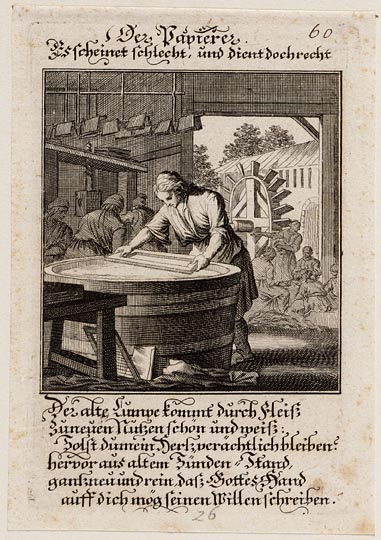 Der Papierer. 60
Es scheinet schlecht, und dient doch recht
Der alte Lumpe kommt durch Fleiß
Zu neuen Nutzen schön und weiß:
Solst du mein Hertz verächtlich bleiben?
hervor aus altem Sünden-Stand,
gantz neu und rein, daß Gottes Hand
auff dich mög seinen Willen schreiben.
26